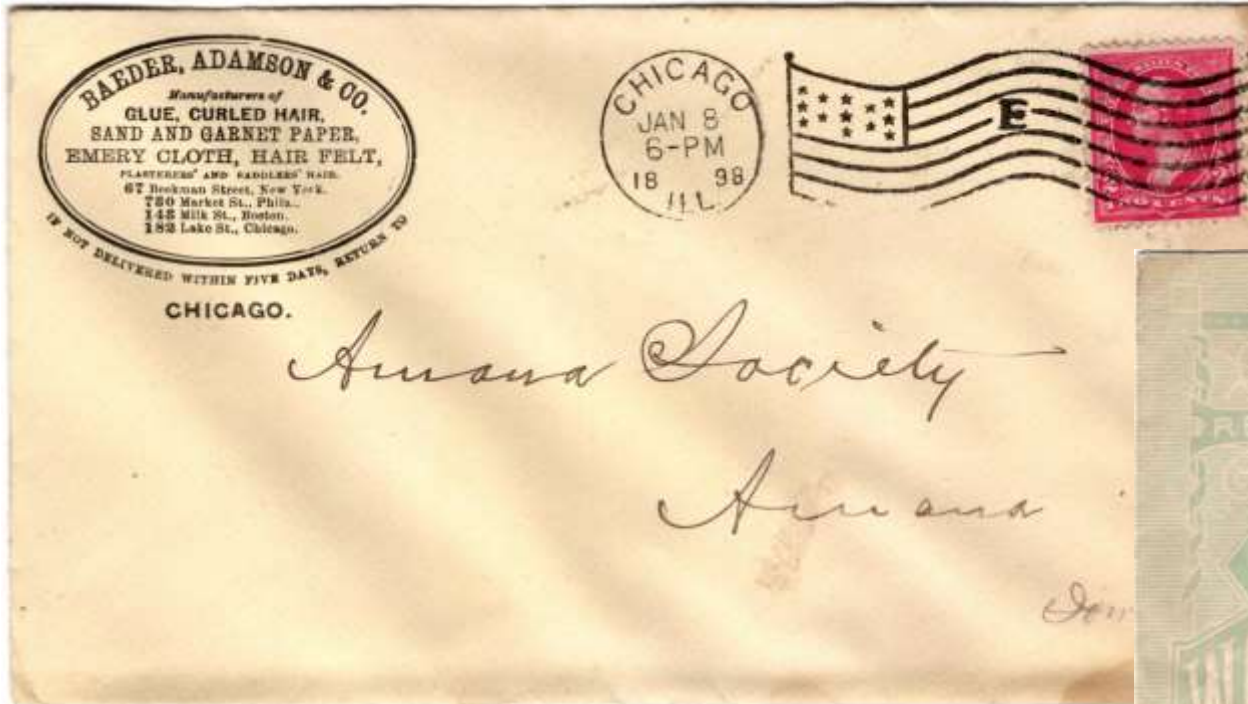 BAEDER, ADAMSON & CO.
Manufacturers of
GLUE, CURLED HAIR,
SAND AND GARNET PAPER,
EMERY CLOTH, HAIR FELT,
PLASTERERS' AND SADDLERS' HAIR.
67 Beekman Street, New York.
730 Market St., Phila.,
143 Milk St., Boston.
182 Lake St., Chicago.
IF NOT DELIVERED WITHIN FIVE DAYS, RETURN TO
CHICAGO.
CHICAGO
JAN 8
6-PM
18 98
ILL
E
TWO CENTS
Amana Society
Amana